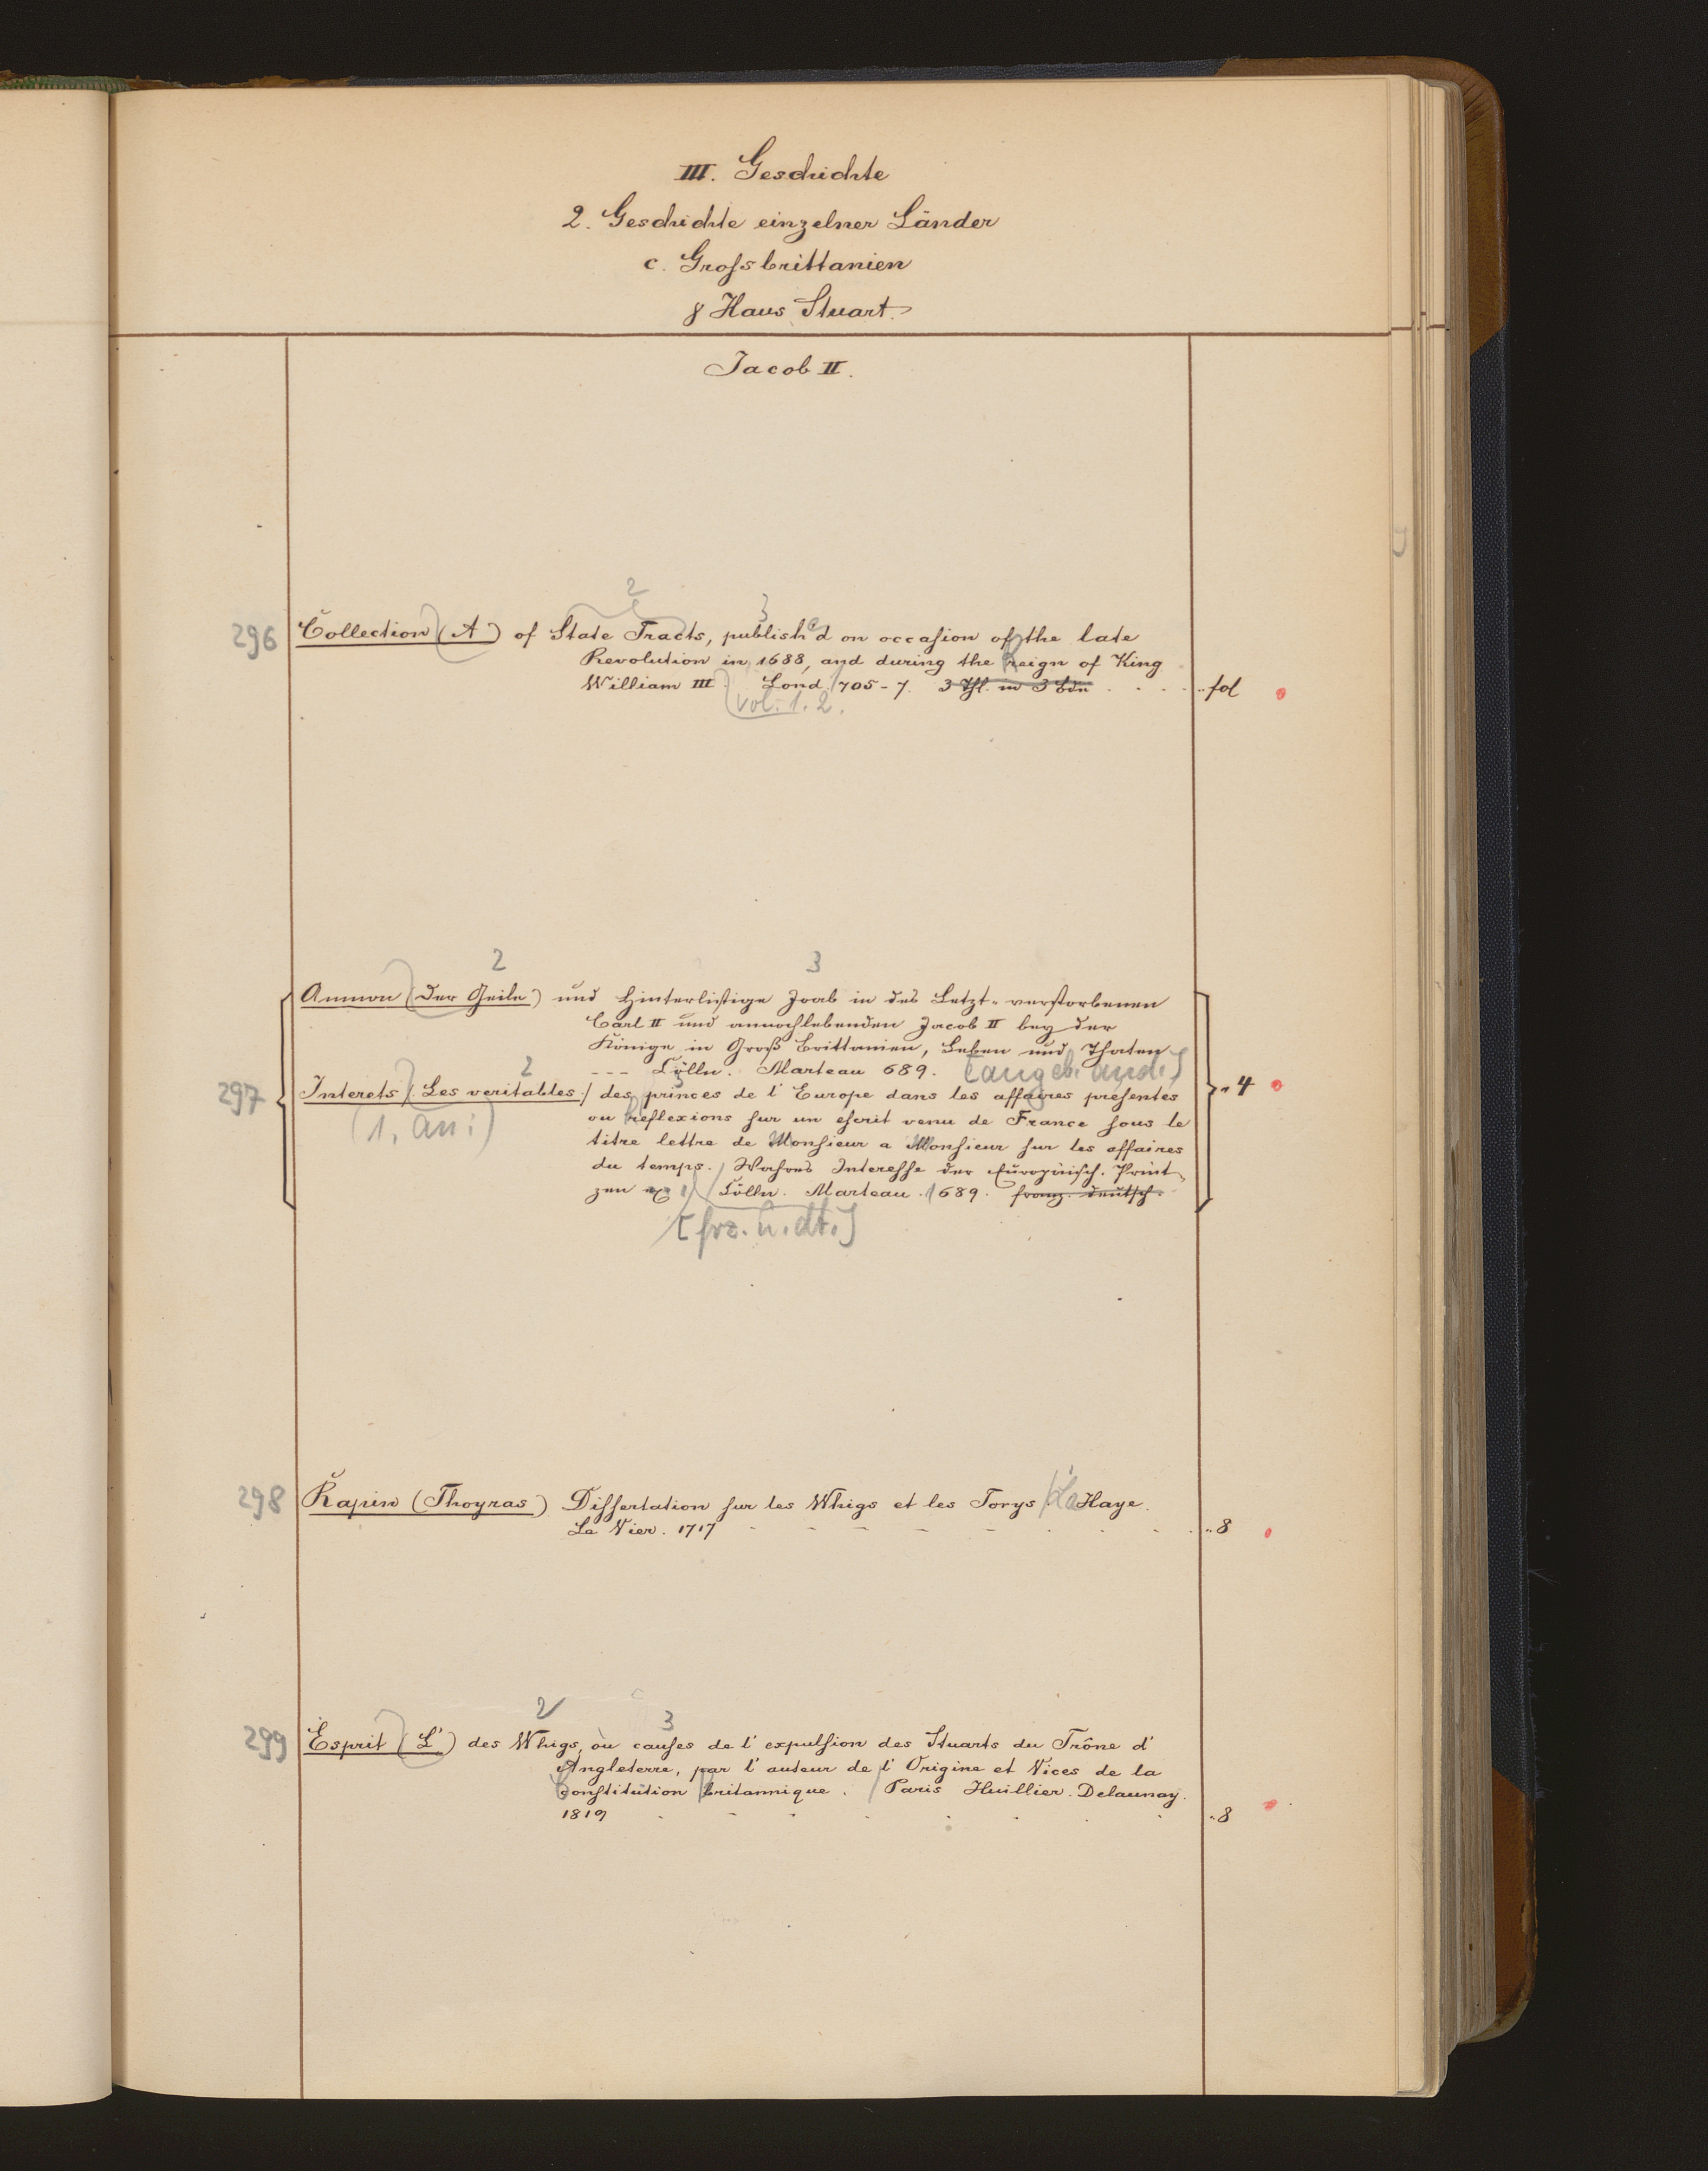 III. Geschichte
2. Geschichte einzelner Länder
c. Grossbrittanien
γ Haus Stuart.
Jacob II.
2 3
296 Collection (A) of State Tracts, publish'd on occasion of the late
Revolution in 1688, and during the reign of King
William III. Lond. 1705-7. 3 Thl. in 3 bdn fol
vol. 1. 2.
2 3
Ammon (Der Geile) und hinterlistige Joab in des Letzt-verstorbenen
Carl II und annochlebenden Jacob II bey der
Könige in Groß Brittanien, Leben und Thaten
--- Cölln. Marteau 689. [angeb. and.]
2 3
297 Interets (Les veritables) des princes de l'Europe dans les affaires presentes „4
(1, an:) ou reflexions sur un escrit venu de France sous le
titre lettre de Monsieur a Monsieur sur les affaires
du temps. / Wahres Interesse der Europäisch. Print
zen Cölln. Marteau. 1689. franz. deutsch.
[frz. u. dt.]
298 Rapin (Thoyras) Dissertation sur les Whigs et les Torys / La Haye.
Le Vier. 1717 „8
2 3
299 Esprit (L') des Whigs, où causes de l'expulsion des Stuarts du Trône d'
Angleterre, par l'auteur de l'Origine et Vices de la
constitution britannique. / Paris Huillier. Delaunay.
1819 „8